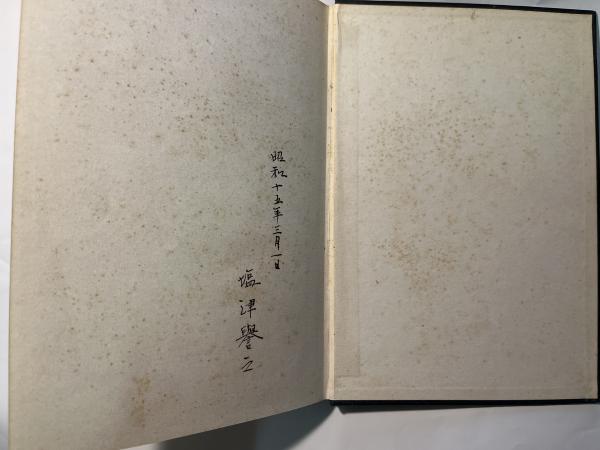 昭和十五年三月一日
塩津譽之